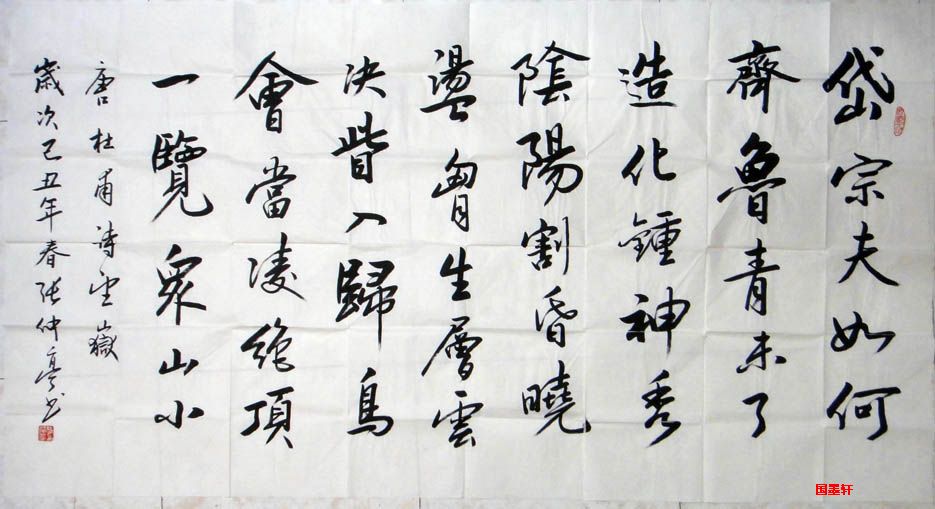 岱宗夫如何
齊魯青未了
造化鍾神秀
陰陽割昏曉
盪胷生層雲
決眥入歸鳥
會當凌絶頂
一覽眾山小
唐杜甫詩望嶽
歲次己丑年春張仲亭书
国墨轩